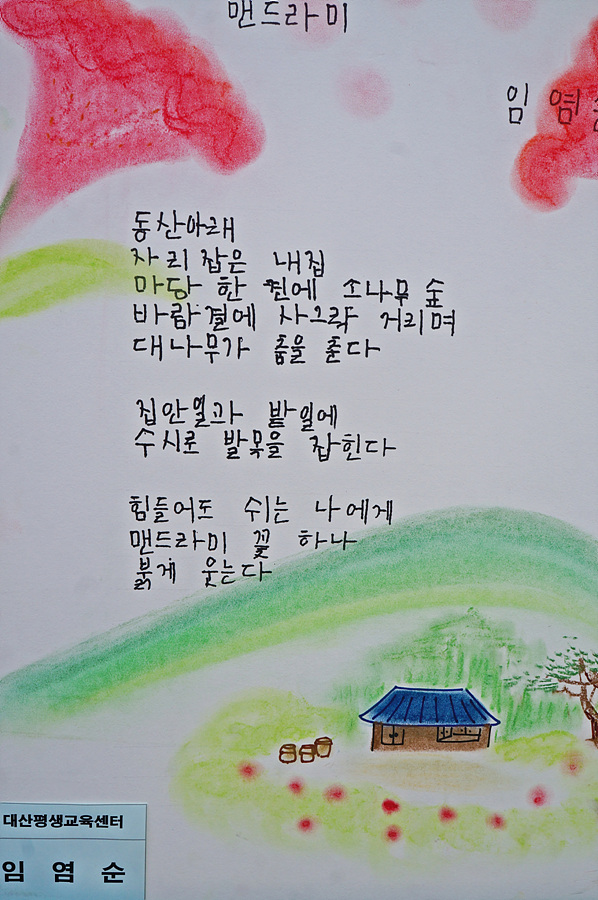 맨드라미
임 염순
동산아래
자리 잡은 내집
마당 한 켠에 소나무 숲
바람결에 사그락 거리며
대나무가 춤을 춘다
집안일과 밭일에
수시로 발목을 잡힌다
힘들어도 쉬는 나에게
맨드라미 꽃 하나
붉게 웃는다
대산평생교육센터
임 염 순